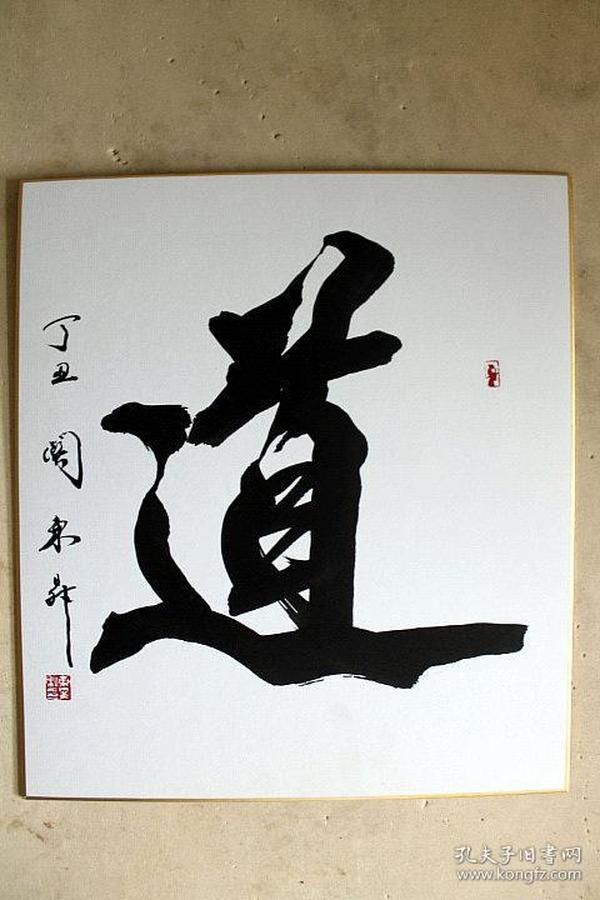 道
丁丑 關東昇
孔夫子旧書网
www.kongfz.com